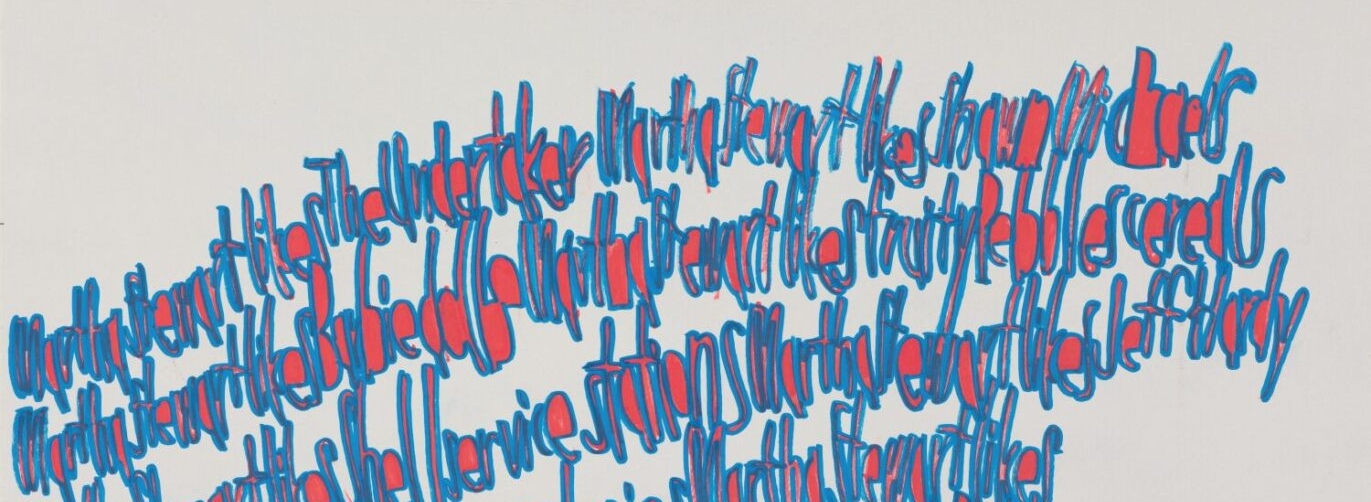 Martha Stewart likes The Undertaker Martha Stewart likes Shawn Michaels
Martha Stewart likes Barbie dolls Martha Stewart likes fruity Pebbles cereals
Martha Stewart likes Shell service stations Martha Stewart likes Jeff Hardy
Martha Stewart likes